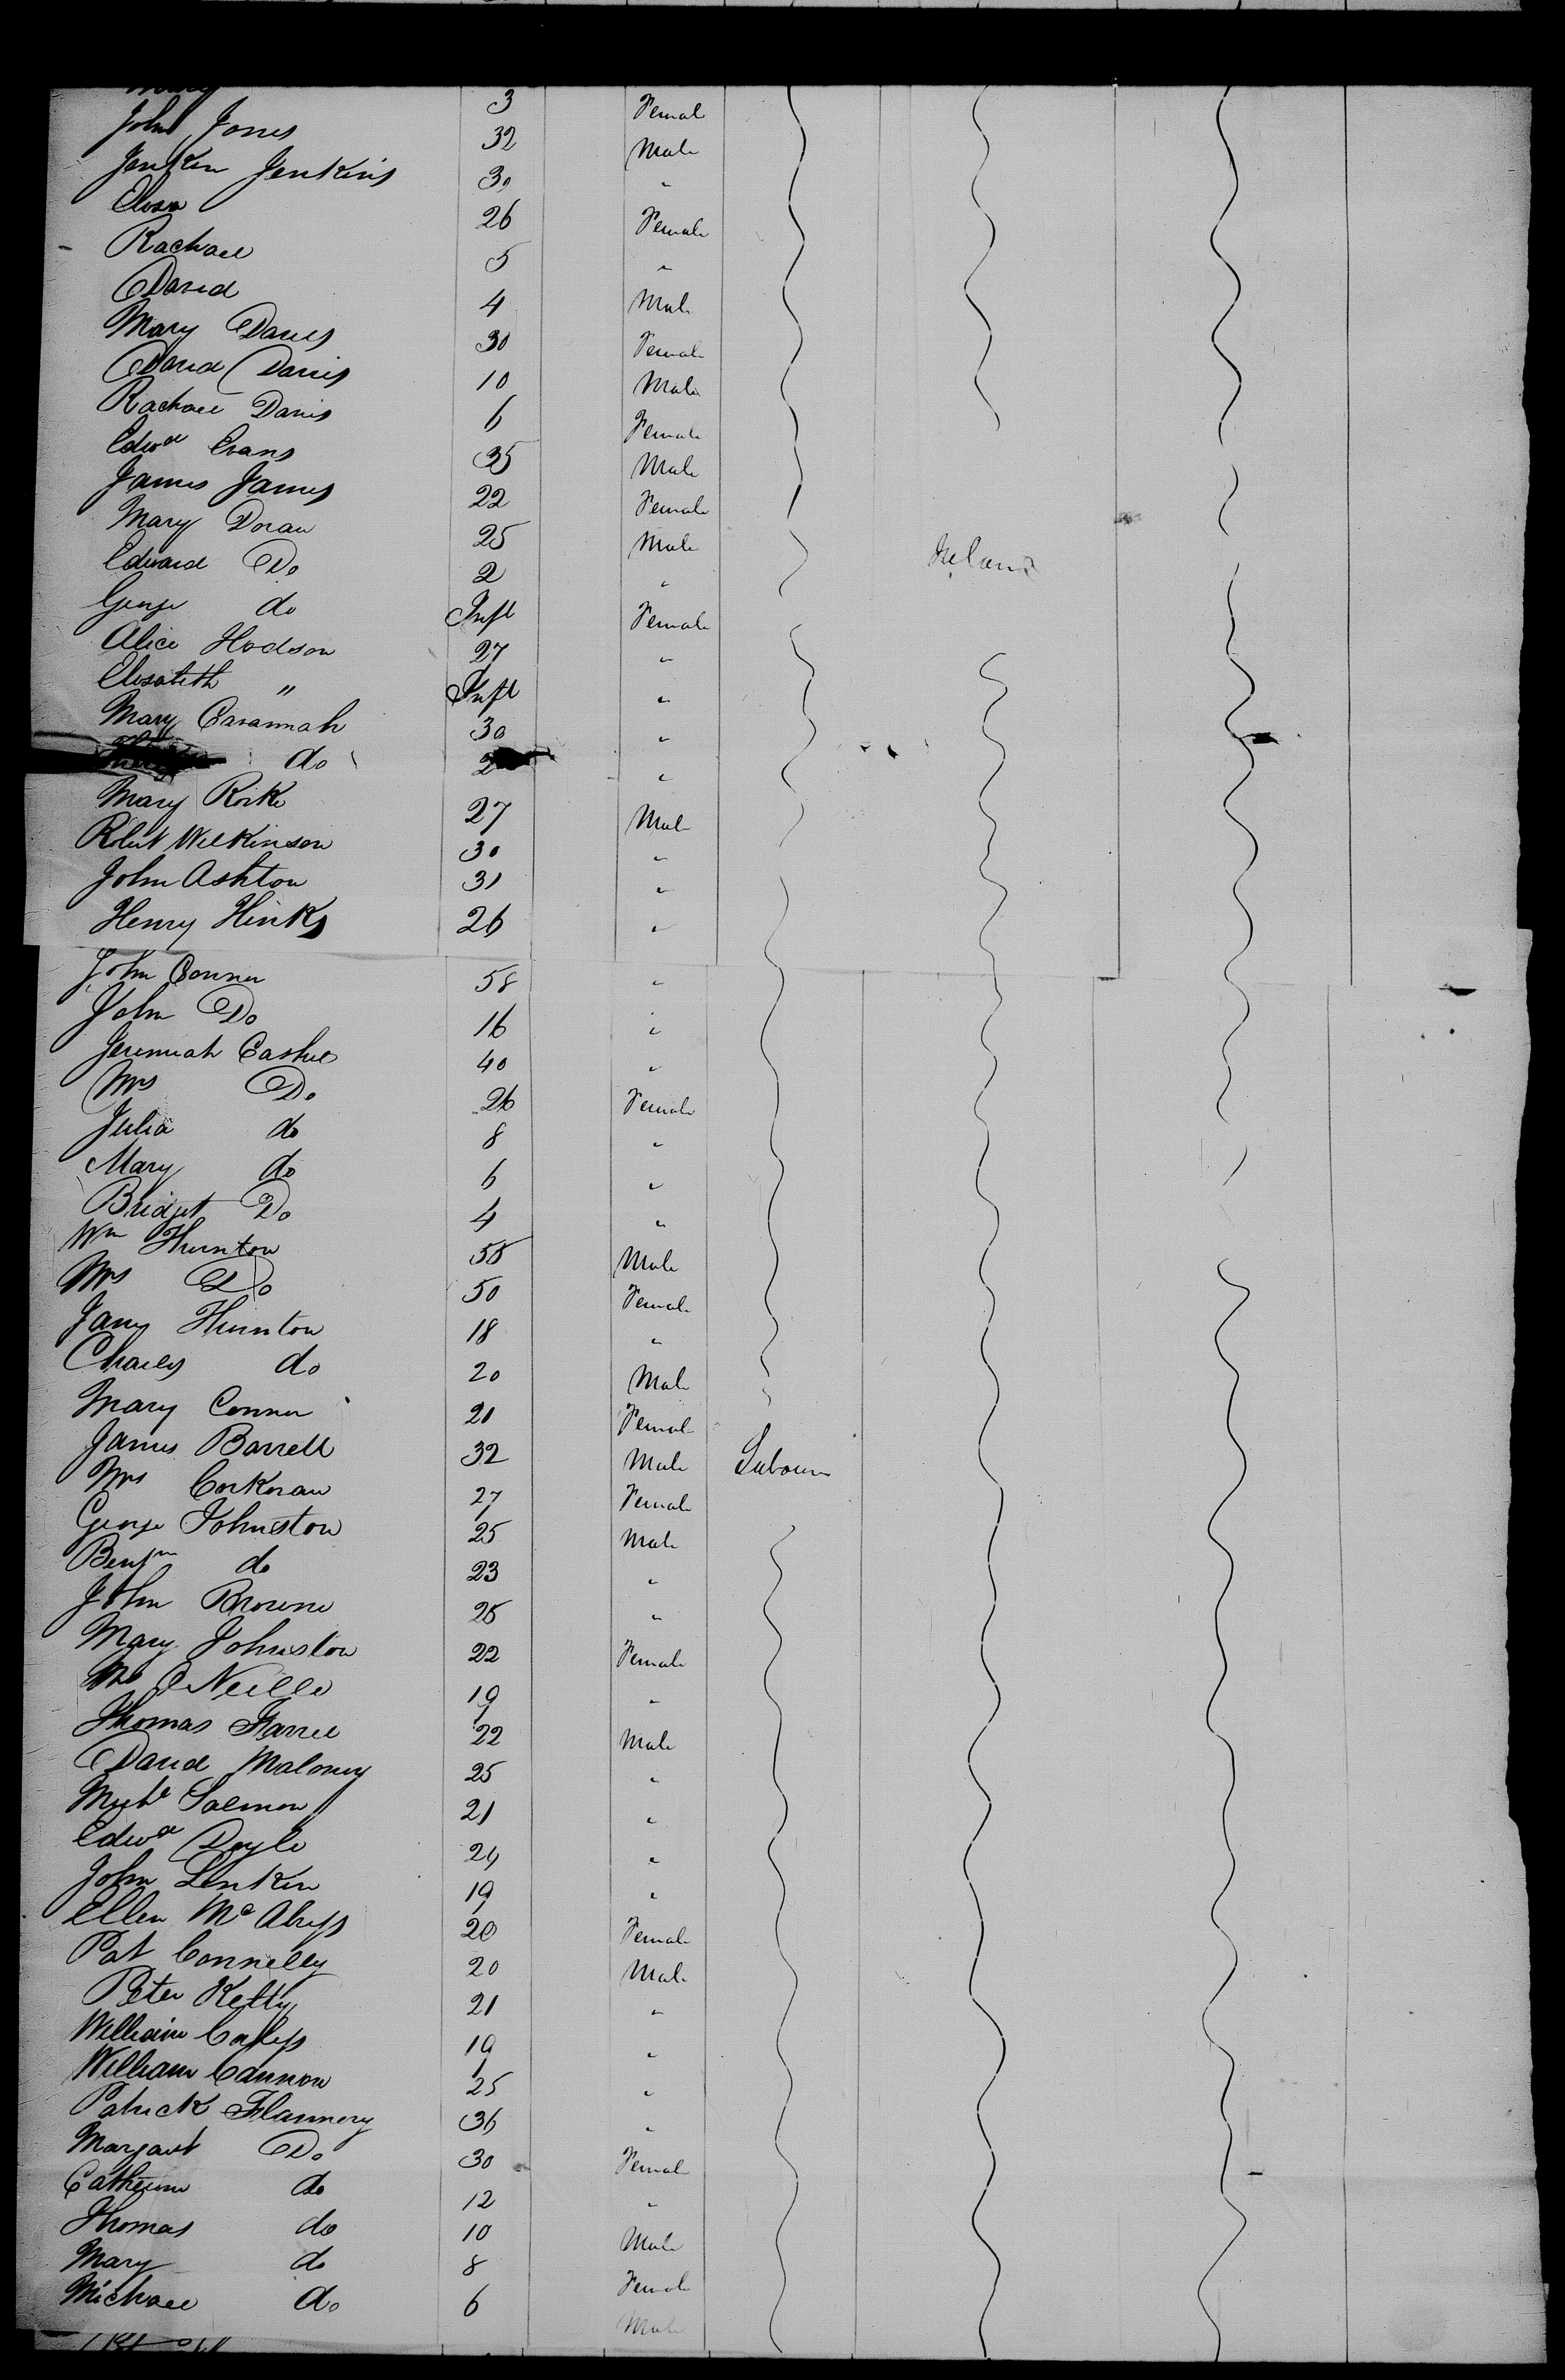 Mary 3 Female
John Jones 32 Male
Jenkin Jenkins 30 "
Elisa 26 Female
Rachael 5 "
David 4 Male
Mary Davis 30 Female
David Davis 10 Male
Rachael Davis 6 Female
Edwd Evans 35 Male
James James 22 Female
Mary Doran 25 Male
Edward Do 2 " Ireland
George do Inft Female
Alice Hodson 27 "
Elisabeth " Inft "
Mary Cavannah 30 "
do 2 "
Mary Rorke 27 Male
Robert Wilkinson 30 "
John Ashton 31 "
Henry Hinks 26 "
John Connor 58 "
John Do 16 "
Jeremiah Cashel 40 "
Mrs Do 26 Female
Julia do 8 "
Mary do 6 "
Bridget Do 4 "
Wm Thurnton 55 Male
Mrs Do 50 Female
Jany Thurnton 18 "
Charles do 20 Male
Mary Connor 21 Female
James Barrett 32 Male Labourer
Mrs Corkoran 27 Female
George Johnston 25 Male
Benjm do 23 "
John Browne 25 "
Mary Johnston 22 Female
O'Neille 19 "
Thomas Farrel 22 Male
David Maloney 25 "
Michl Salmon 21 "
Edwd Doyle 24 "
John Lenkin 19 "
Ellen Mc 20 Female
Pat Connelly 20 Male
Peter Kelly 21 "
William 19 "
William Cannon 25 "
Patrick Flannery 36 "
Margaret Do 30 Female
Catherine do 12 "
Thomas do 10 Male
Mary do 8 Female
Michael do 6 Male